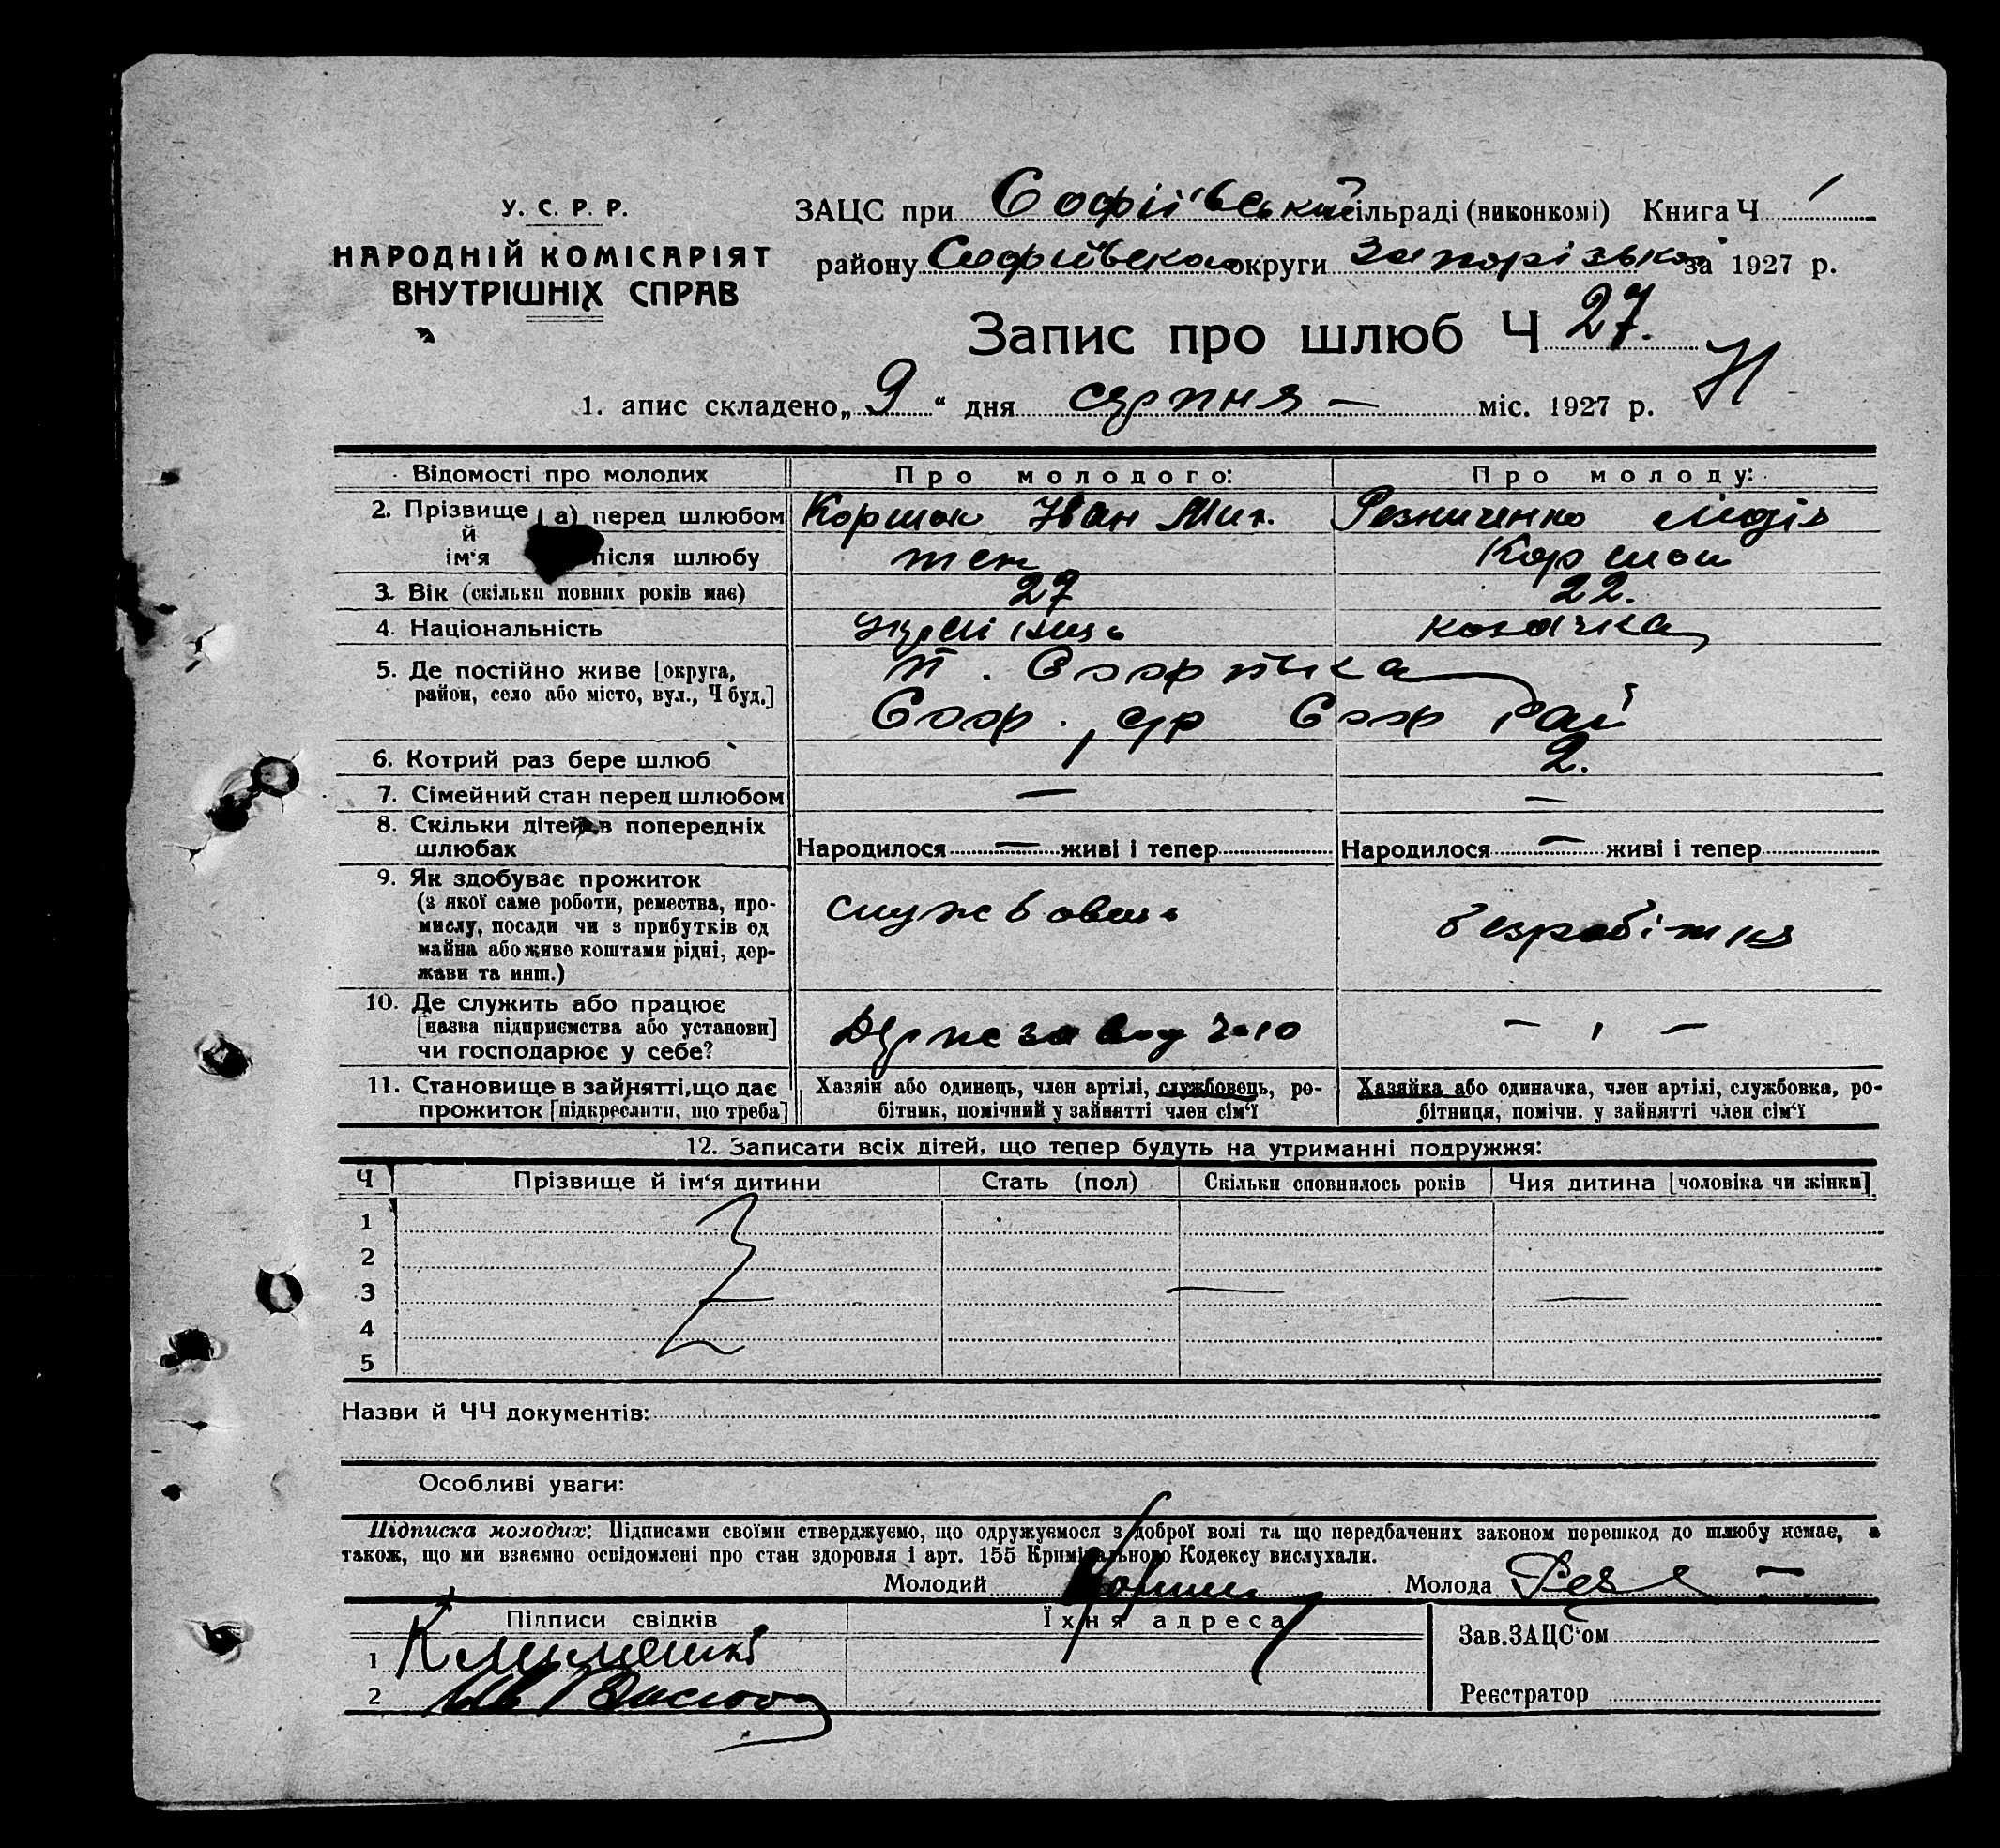 У. С. Р. Р.
НАРОДНІЙ КОМІСАРІЯТ
ВНУТРІШНІХ СПРАВ
ЗАЦС при Софіївській сільраді (виконкомі) Книга Ч 1
району Софіївською округи Запорізької за 1927 р.
Запис про шлюб Ч 27.
1. апис складено „ 9 “ дня серпня — міс. 1927 р.
Відомості про молодих Про молодого: Про молоду:
2. Прізвище й ім'я а) перед шлюбом Коршак Іван Мих. Резниченко Лідія
після шлюбу теж Коршак
3. Вік (скільки повних років має) 27 22.
4. Національність українець козачка
5. Де постійно живе [округа,
район, село або місто, вул., Ч буд.]
Соф. с/р Соф рай
6. Котрий раз бере шлюб 1 2.
7. Сімейний стан перед шлюбом — —
8. Скільки дітей в попередніх
шлюбах Народилося — живі і тепер Народилося — живі і тепер
9. Як здобуває прожиток
(з якої саме роботи, ремества, про-
мислу, посади чи з прибутків од
майна або живе коштами рідні, дер-
жави та инш.)
службовець безробітня
10. Де служить або працює
[назва підприємства або установи]
чи господарює у себе?
Держзавод №10 — , —
11. Становище в зайнятті, що дає Хазяїн або одинець, член артілі, службовець, ро- Хазяйка або одиначка, член артілі, службовка, ро-
прожиток [підкреслити, що треба] бітник, помічний у зайнятті член сім'ї бітниця, помічн. у зайнятті член сім'ї
12. Записати всіх дітей, що тепер будуть на утриманні подружжя:
Ч Прізвище й ім'я дитини Стать (пол) Скільки сповнилось років Чия дитина [чоловіка чи жінки]
1
2
3
4
5
Назви й ЧЧ документів:
Особливі уваги:
Підписка молодих: Підписами своїми стверджуємо, що одружуємося з доброї волі та що передбачених законом перешкод до шлюбу немає, а
також, що ми взаємно освідомлені про стан здоровля і арт. 155 Кримінального Кодексу вислухали.
Молодий Молода
Підписи свідків Їхня адреса
1
2
Зав.ЗАЦС'ом
Реєстратор